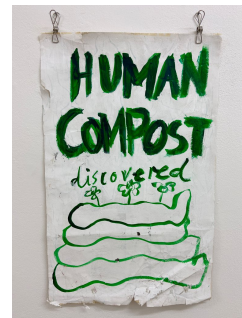 HUMAN
COMPOST
discovered